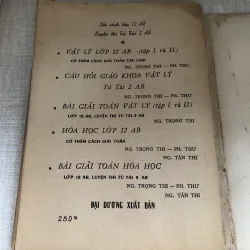 Các sách lớp 12 AB
Luyện thi Tú Tài 2 AB
• VẬT LÝ LỚP 12 AB (tập I và II)
CÓ THÊM CÁCH GIẢI TOÁN CÁC LOẠI
NG. TRỌNG THI — PH. THƯ
• CÂU HỎI GIÁO KHOA VẬT LÝ
Tú Tài 2 AB
NG. TRỌNG THI — PH. THƯ
• BÀI GIẢI TOÁN VẬT LÝ (tập I và II)
LỚP 12 AB, LUYỆN THI TÚ TÀI 2 AB
NG. TRỌNG THI
• HÓA HỌC LỚP 12 AB
CÓ THÊM CÁCH GIẢI TOÁN
NG. TRỌNG THI — PH. THƯ
NG. TẤN THI
• BÀI GIẢI TOÁN HÓA HỌC
LỚP 12 AB, LUYỆN THI TÚ TÀI 2 AB
NG. TRỌNG THI — PH. THƯ
NG. TẤN THI
ĐẠI DƯƠNG XUẤT BẢN
280$